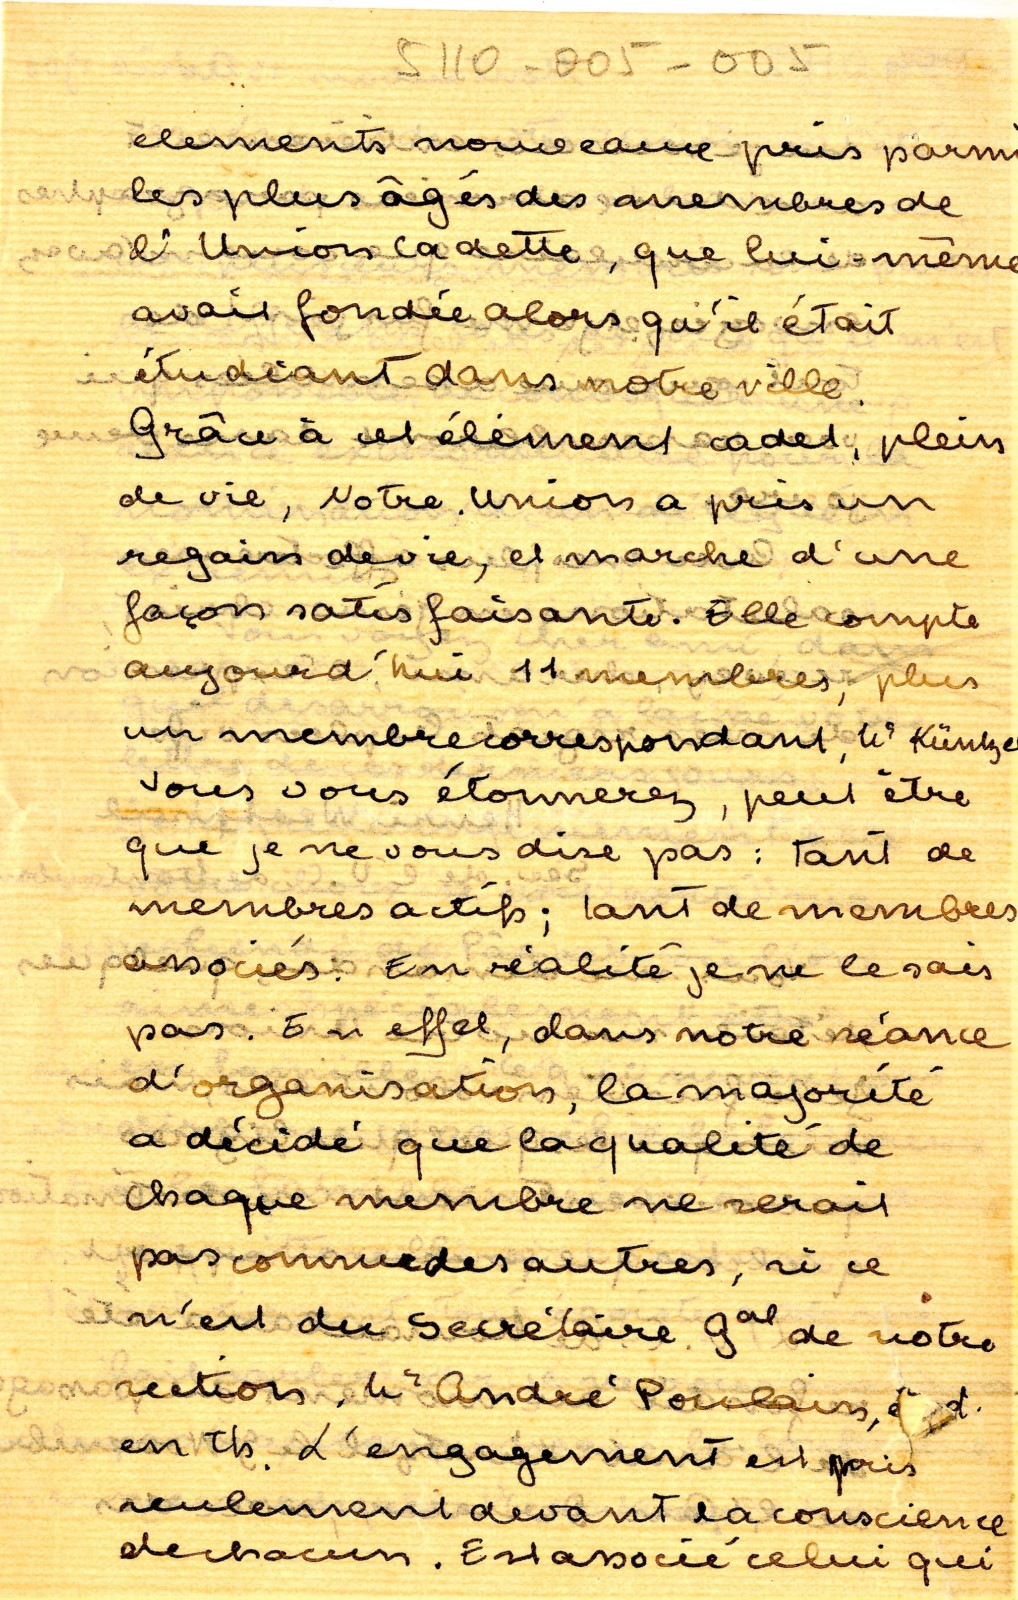 elements nouveaux pris parmi
les plus âgés des membres de
l'Union Cadette, que lui-même
avait fondée alors qu'il était
étudiant dans notre ville.
Grâce à cet élément cadet, plein
de vie, Notre Union a pris un
regain de vie, et marche d'une
façon satisfaisante. Elle compte
aujourd'hui 11 membres, plus
un membre correspondant, Mr
Vous vous étonnerez, peut être
que je ne vous dise pas : tant de
membres actifs ; tant de membres
associés. En réalité je ne le sais
pas. En effet, dans notre séance
d'organisation, la majorité
a décidé que la qualité de
chaque membre ne serait
pas connue des autres, si ce
n'est du Secrétaire Gal de notre
section. Mr André Poulain,
en Th. L'engagement est pris
seulement devant la conscience
de chacun. Est associé celui qui